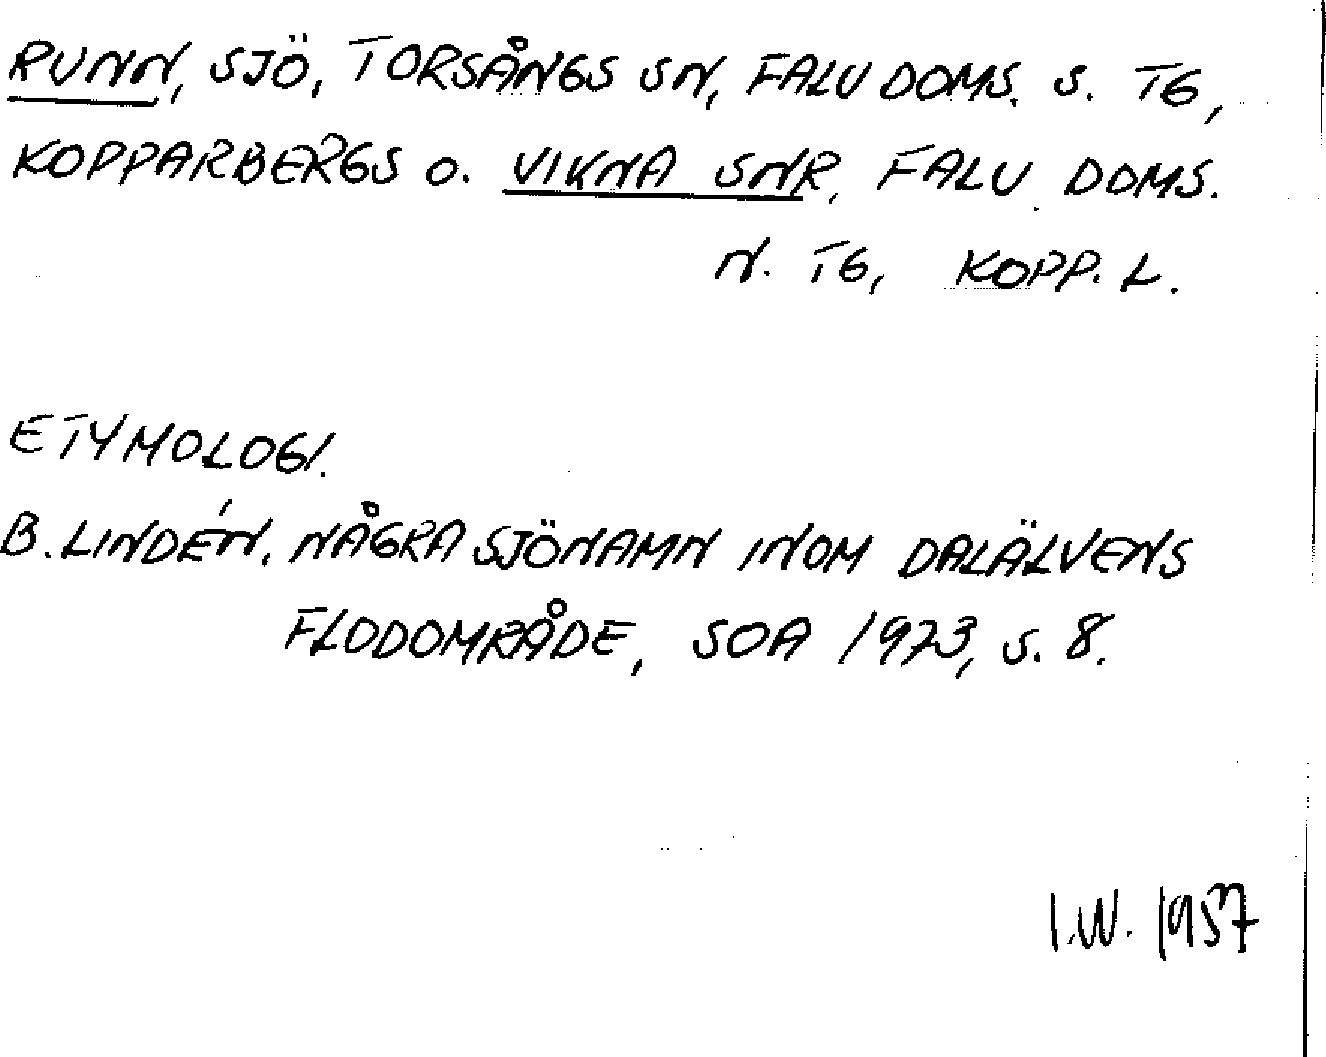 RUNN, SJÖ, TORSÅNGS SN, FALU DOMS. S. TG,
KOPPARBERGS O. VIKNA SNR, FALU DOMS.
N. TG, KOPP. L.
ETYMOLOGI.
B. LINDÉN. NÅGRA SJÖNAMN INOM DALÄLVENS
FLODOMRÅDE, SOA 1923, S. 8.
I.W. 1957